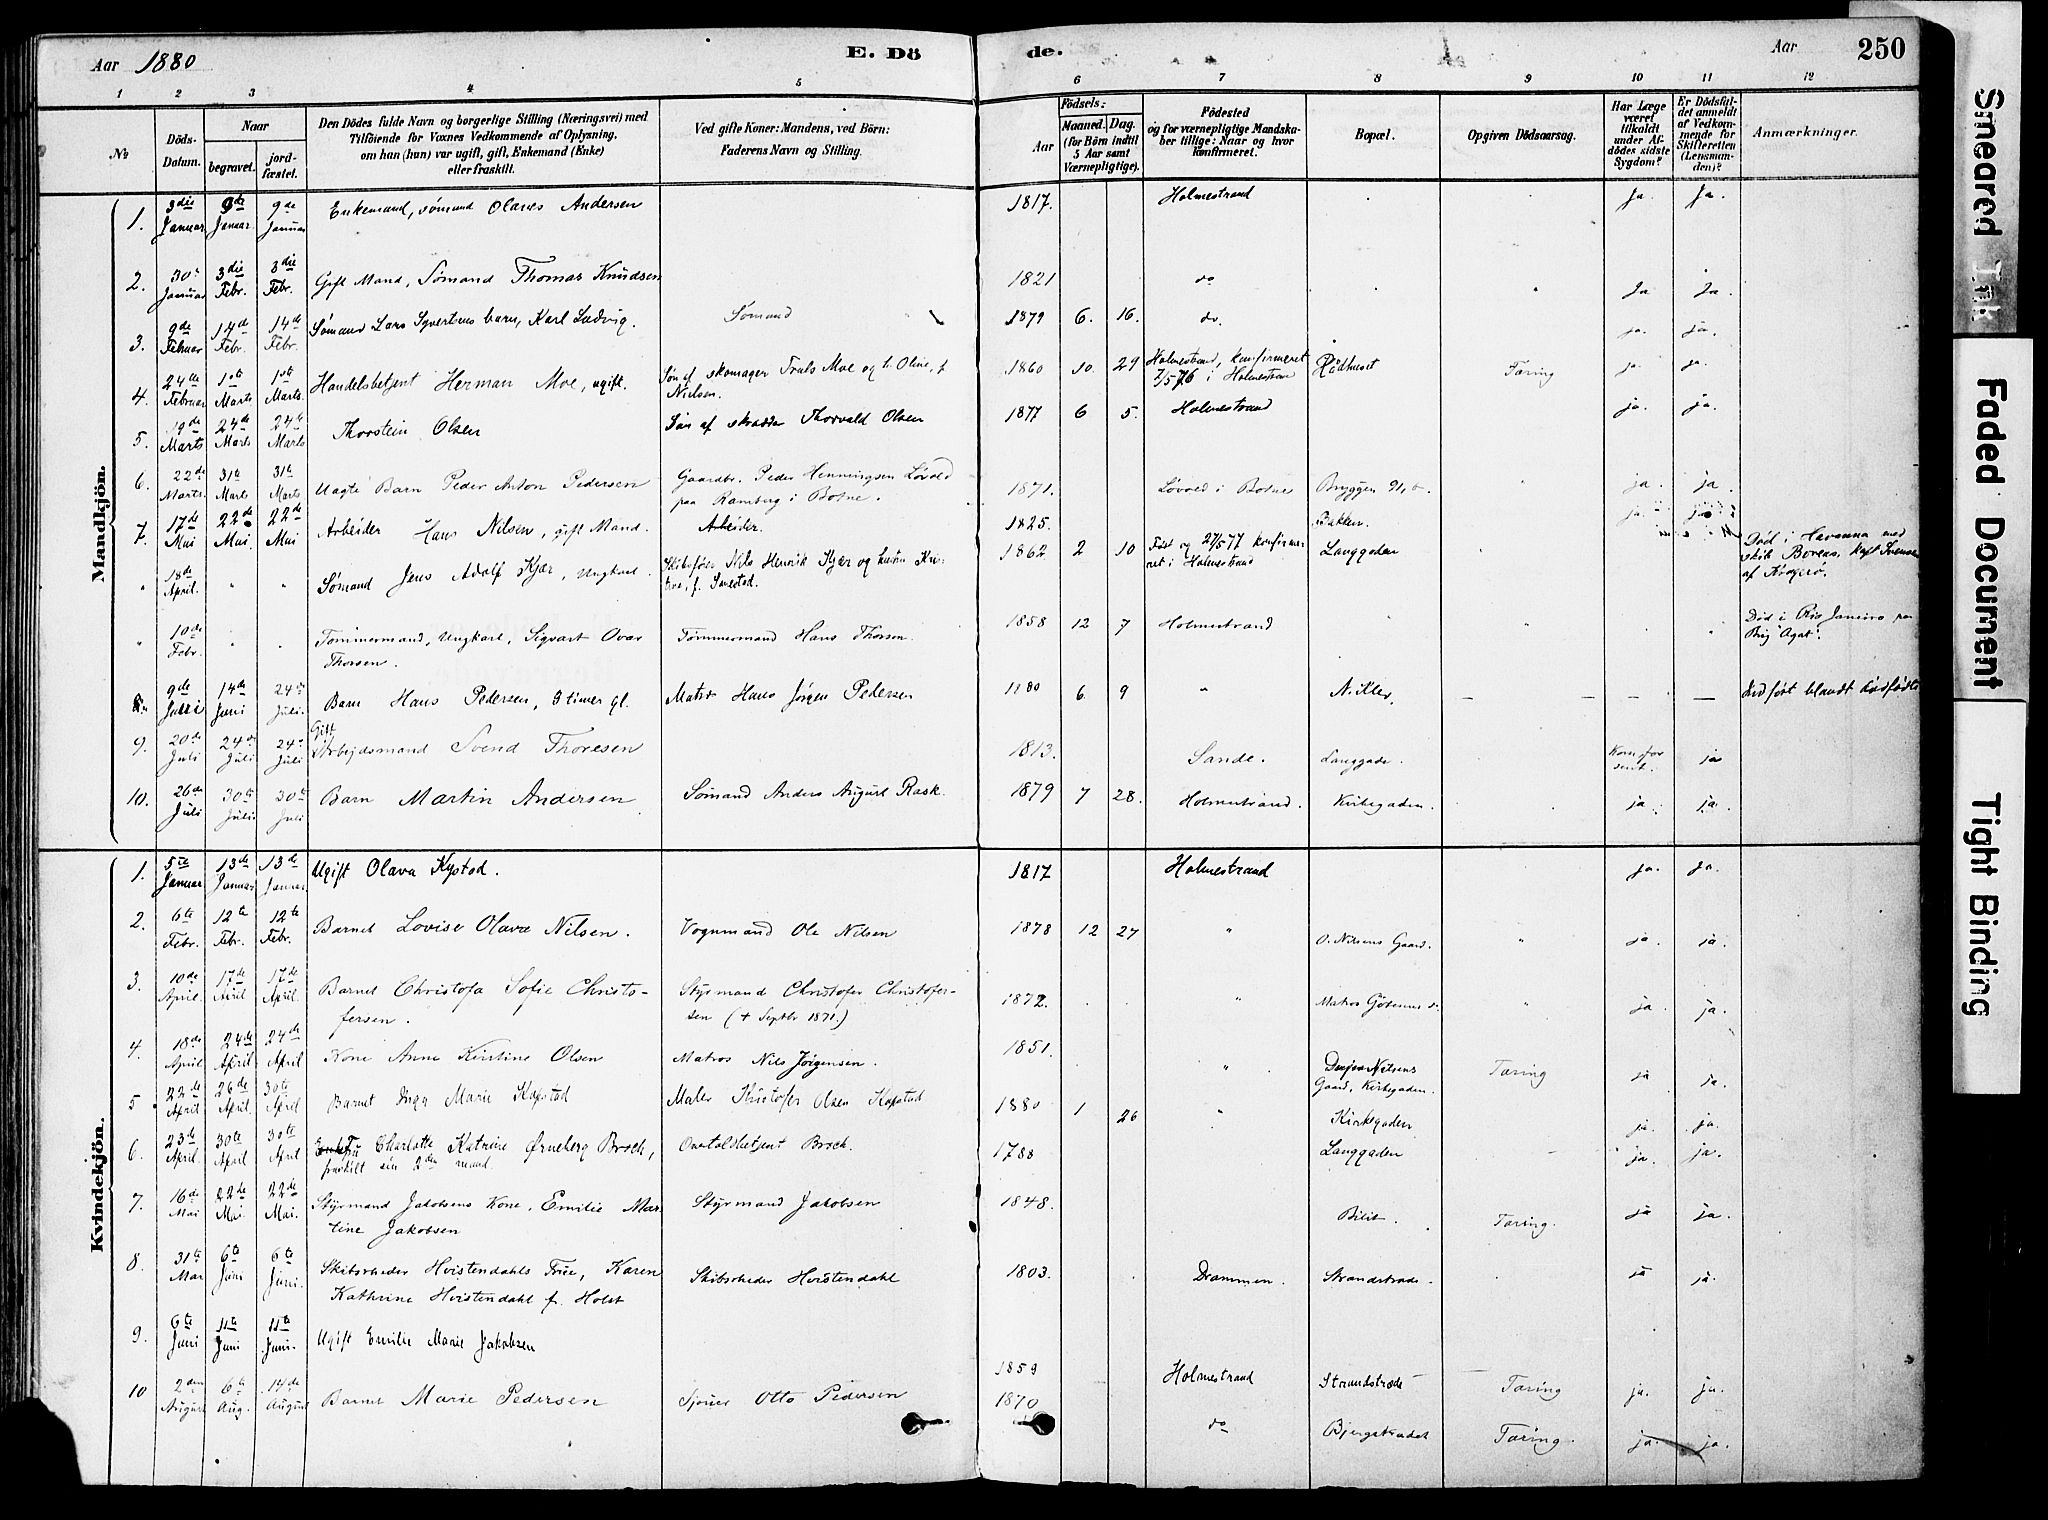 Aar 1880
E. Dö
de.
Aar
250
1 2 3 4 5 6 7 8 9 10 11 12
№
Döds-Datum.
Naar
begravet.
jordfæstet.
Den Dödes fulde Navn og borgerlige Stilling (Næringsvei) med
Tilföiende for Voxnes Vedkommende af Oplysning,
om han (hun) var ugift, gift, Enkemand (Enke)
eller fraskilt.
Ved gifte Koner: Mandens, ved Börn:
Faderens Navn og Stilling.
Födsels:
Aar
Maaned. Dag.
(for Börn indtil
5 Aar samt
Værnepligtige).
Födested
og for værnepligtige Mandska-
ber tillige: Naar og hvor
konfirmeret.
Bopæl.
Opgiven Dödsaarsag.
Har Læge
været
tilkaldt
under Af-
dödes sidste
Sygdom?
Er Dödsfal-
det anmeldt
af Vedkom-
mende for
Skifteretten
(Lensman-
den)?
Anmærkninger.
Mandkjön.
1. 3die Januar 9de Januar 9de Januar Enkemand, sømand Olaves Andersen 1817. Holmestrand Ja. Ja.
2. 30. Januar 3die Febr. 3die Febr. Gift Mand, Sømand Thomas Knudsen 1821 do Ja Ja.
3. 9de Februar 14de Febr. 14de Febr. Sømand Lars Syvertsens barn, Karl Ludvig. Sømand 1879 6. 16. do. ja. ja.
4. 24de Februar 1ste Marts 1ste Marts. Handelsbetjent Herman Moe, ugift. Søn af skomager Truls Moe og h. Oline, f. Nielsen. 1860 10. 29 Holmestrand, konfirmeret 7/5 76 i Holmestrand Rödhuset Tæring ja. ja.
5. 19de Marts 24de Marts 24de Marts Thorstein Olsen Søn af skrædder Thorvald Olsen 1877 6 5. Holmestrand ja. ja.
6. 22de Marts 31te Marts 31te Marts Uægte Barn Peder Anton Pedersen Gaardbr. Peder Henningsen Løvold paa Ramberg i Botne. 1871. Løvold i Botne Bryggen ja. ja.
7. 17de Mai 22de Mai 22de Mai Arbeider Hans Nilsen, gift Mand. Arbeider. 1825. Bakken. ja. ja
" 18de April. " " Sømand Jens Adolf Kjær, Ungkarl. Skibsfører Nils Henrik Kjær og hustru 1862 2 10 Født og 27/5 77 konfirmeret i Holmestrand Langgaden Død i Havanna med skib Boreas, kapt Svensen af Kragerø.
" 10de Febr. " " Tømmermand, Ungkarl, Sigvart Ovar Thorsen. Tømmermand Hans Thorsen. 1858 12 7 Holmestrand " Død i Rio Janeiro paa Brig "Agat".
8. 9de Juni 14de Juni 24de Juli. Barn Hans Pedersen, 9 timer gl. Matros Hans Jørgen Pedersen 1880 6 9 " N. Klev. — — — — Indført blandt dødfødte
9. 20de Juli 24de Juli 24de Juli Gift Arbejdsmand Svend Thoresen 1813. Sande. Langgade. Kom for sent. ja
10. 26de Juli 30te Juli 30te Juli Barn Martin Andersen Sømand Anders August Rask. 1879 7 28. Holmestrand. Kirkegaden. ja ja.
Kvindekjön.
1. 5te Januar 13de Januar 13de Januar Ugift Olava Kystad. 1817 Holmestrand ja. ja.
2. 6te Febr. 12te Febr. 12te Febr. Barnet Lovise Olava Nilsen. Vognmand Ole Nilsen 1878 12 27 " O. Nilsens Gaard. " ja. ja.
3. 10de April. 17de April 17de April. Barnet Christofa Sofie Christofersen. Styrmand Christofer Christofersen (+ Septbr 1871.) 1872. " Matros " ja. ja.
4. 18de April 24de April 24de April Kone Anne Kirstine Olsen Matros Nils Jørgensen. 1851. " Gaard, Kirkegaden. Tæring ja ja.
5. 22de April 26de April 30te April Barnet Inga Marie Kapstad Maler Kristofer Olsen Kapstad 1880 1 26 " Kirkegaden ja. ja.
6. 23de April. 30te April 30te April Fru Charlotte Katrine Ørneberg Broch, fraskilt sin 2den mand. Overtoldbetjent Broch. 1788 Langgaden ja. ja.
7. 16de Mai 22de Mai. 22de Mai. Styrmand Jakobsens Kone, Emilie Martine Jakobsen Styrmand Jakobsen 1848. Bilit. Tæring. ja ja.
8. 31te Mai 6te Juni 6te Juni. Skibsrheder Hvistendahls Frue, Karen Kathrine Hvistendahl f. Holst Skibsrheder Hvistendahl 1803. Drammen. Strandstræde. ja ja.
9. 6te Juni 11te Juni 11te Juni. Ugift Emilie Marie Jakobsen 1859 Holmestrand Strandstræde Tæring ja. ja.
10 2den August 6te Aug. 14de August Barnet Marie Pedersen Sjouer Otto Pedersen 1870 do Bjergstrædet Tæring. ja. ja.
Smeared Ink
Faded Document
Tight Binding